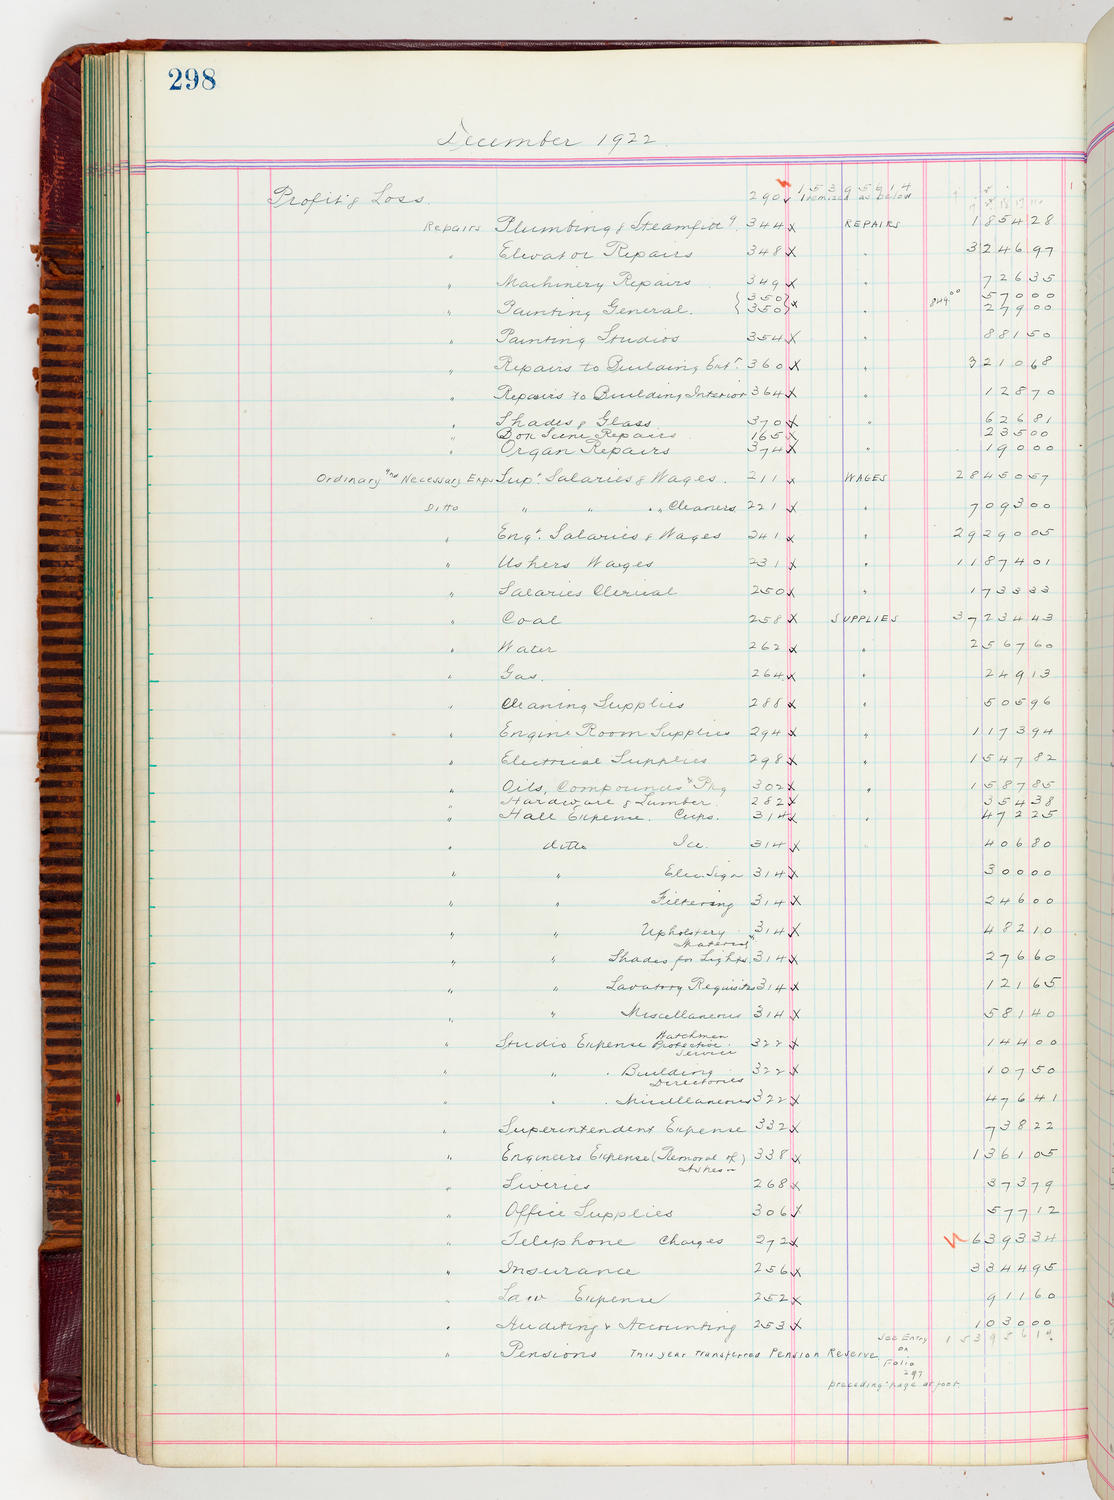 298
December 1922.
Profit & Loss. 290 1 5 3 9 5 6 1 4
Itemized as below
Repairs Plumbing & Steamfitg. 344 x REPAIRS 1 8 5 4 28
" Elevator Repairs 348 x " 3 2 4 6 97
" Machinery Repairs 349 x " 7 2 6 35
" Painting General. {350} x " 849.00 5 7 0 00
{350} 2 7 9 00
" Painting Studios 354 x " 8 8 1 50
" Repairs to Building Extr. 360 x " 3 2 1 0 68
" Repairs to Building Interior 364 x " 1 2 8 70
" Shades & Glass 370 x " 6 2 6 81
" Repairs 165 x 2 3 5 00
" Organ Repairs 374 x " 1 9 0 00
Ordinary and Necessary Exps Supt. Salaries & Wages. 211 x WAGES 2 8 4 5 0 57
Ditto " " " Cleaners 221 x " 7 0 9 3 00
" Engr. Salaries & Wages 241 x " 2 9 2 9 0 05
" Ushers Wages 231 x " 1 1 8 7 4 01
" Salaries Clerical 250 x " 1 7 3 3 33
" Coal 258 x SUPPLIES 3 7 2 3 4 43
" Water 262 x " 2 5 6 7 60
" Gas. 264 x " 2 4 9 13
" Cleaning Supplies 288 x " 5 0 5 96
" Engine Room Supplies 294 x " 1 1 7 3 94
" Electrical Supplies 298 x " 1 5 4 7 82
" Oils, Compounds & Pkg 302 x " 1 5 8 7 85
" Hardware & Lumber. 282 x 3 5 4 38
" Hall Expense. Cups. 314 x " 4 7 2 25
" ditto Ice. 314 x 4 0 6 80
" " Elec. Sign 314 x 3 0 0 00
" " Filtering 314 x 2 4 6 00
" " Upholstery Material 314 x 4 8 2 10
" " Shades for Lights 314 x 2 7 6 60
" " Lavatory Requisites 314 x 1 2 1 65
" " Miscellaneous 314 x 5 8 1 40
" Studio Expense Watchmen Protective Service 322 x 1 4 4 00
" " " Building Directories 322 x 1 0 7 50
" " " Miscellaneous 322 x 4 7 6 41
" Superintendent Expense 332 x 7 3 8 22
" Engineers Expense (Removal of Ashes) 338 x 1 3 6 1 05
" Liveries 268 x 3 7 3 79
" Office Supplies 306 x 5 7 7 12
" Telephone Charges 272 x 6 3 9 3 34
" Insurance 256 x 3 3 4 4 95
" Law Expense 252 x 9 1 1 60
" Auditing & Accounting 253 x 1 0 3 0 00
See Entry 1 5 3 9 5 6 1 4
" Pensions This year transferred Pension Reserve on
Folio
297
preceding page at foot.